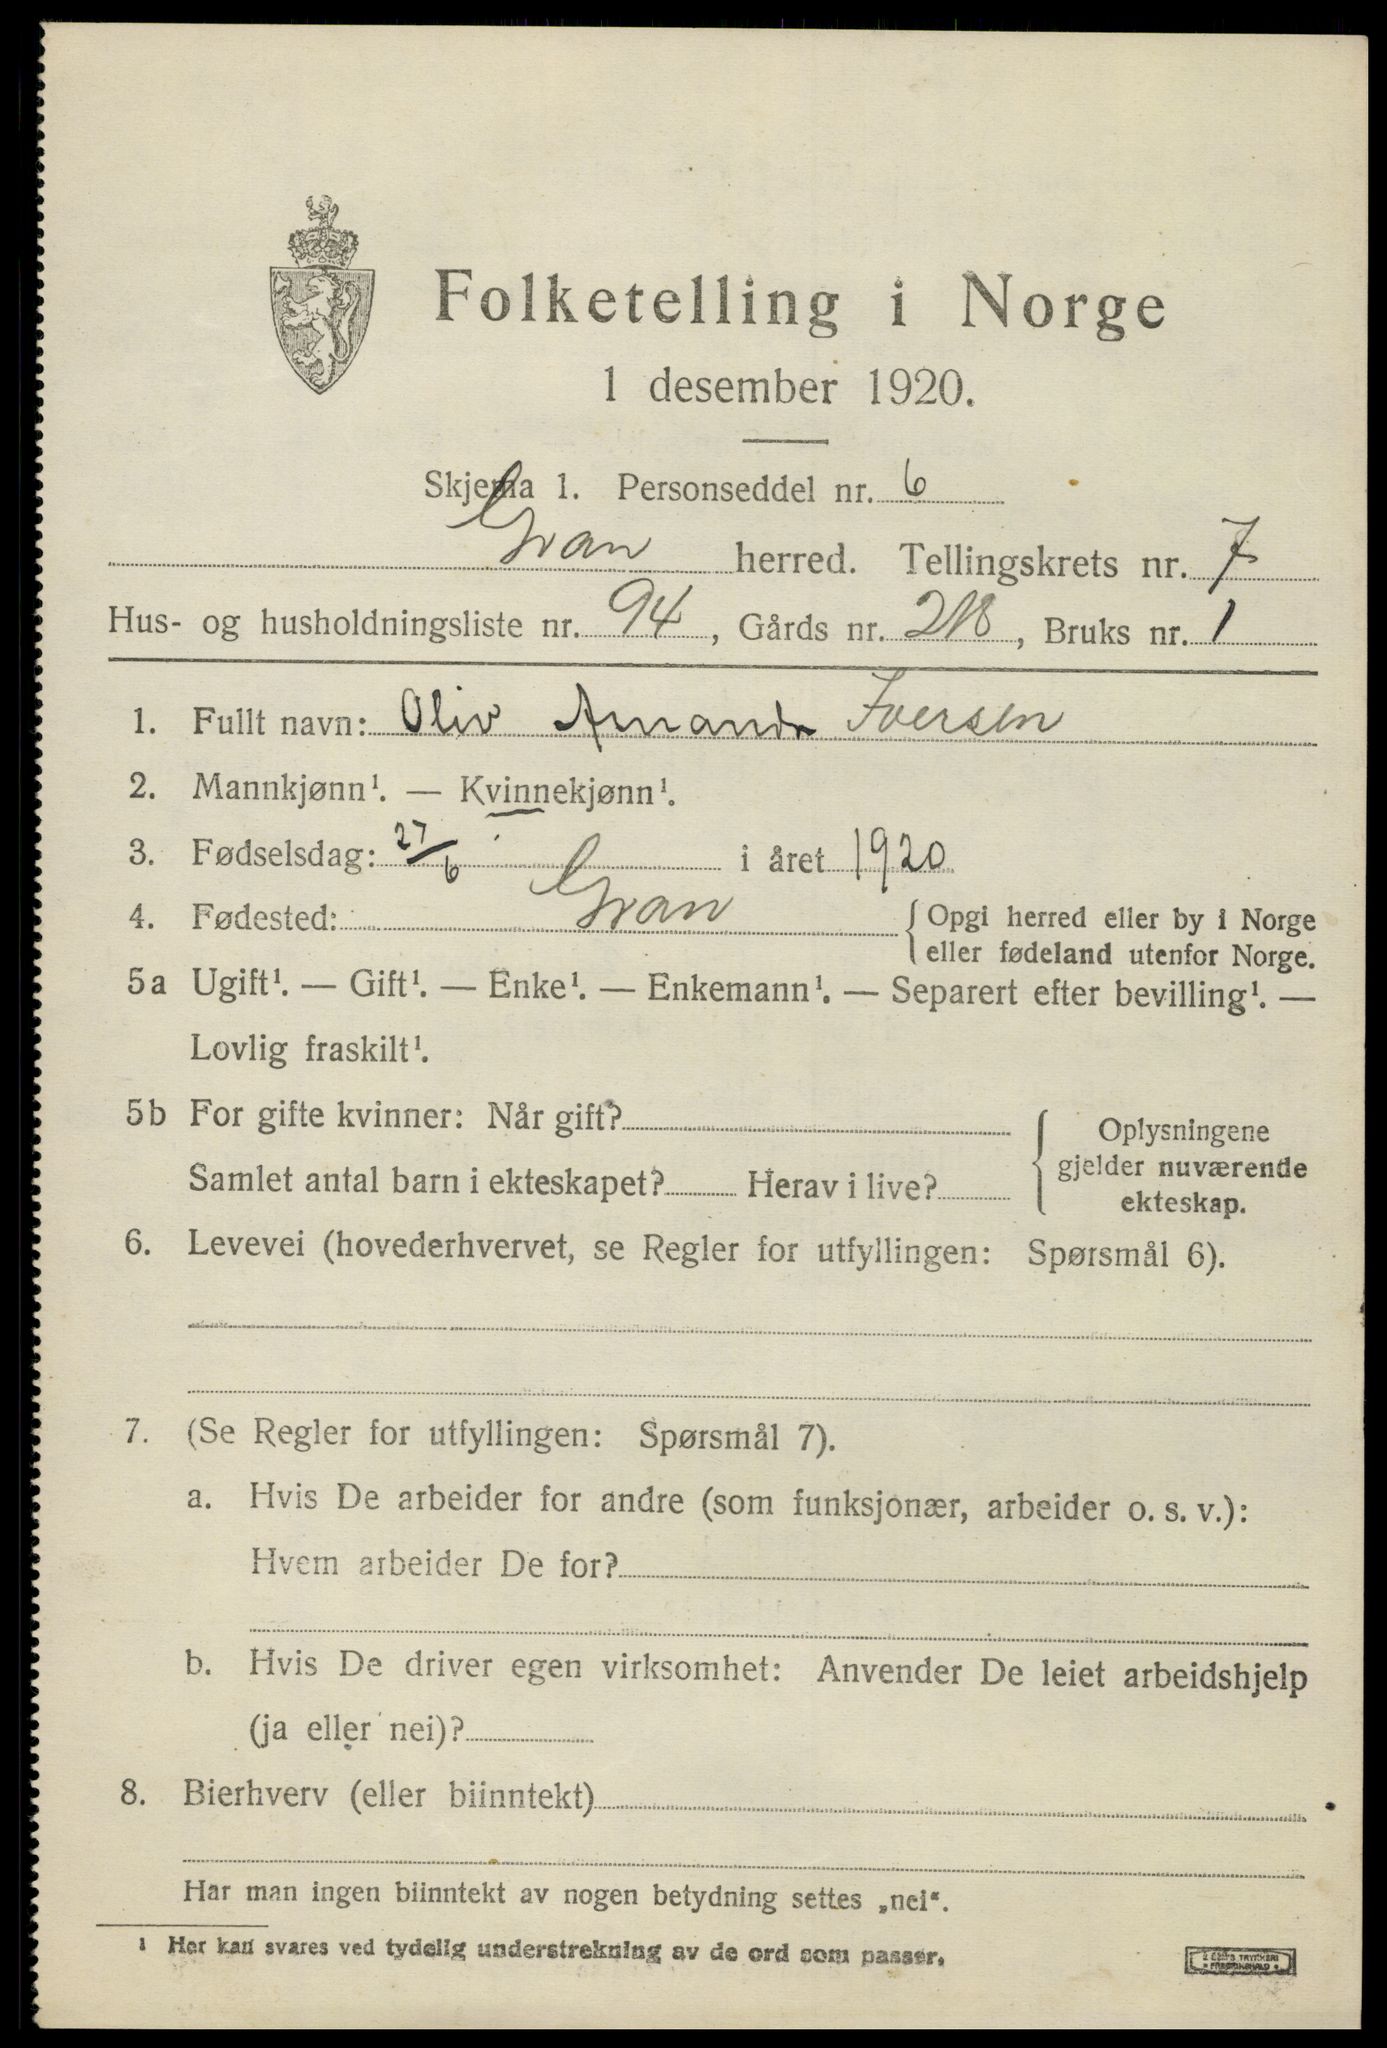 Folketelling i Norge
1 desember 1920.
Skjema 1. Personseddel nr. 6
Gran herred. Tellingskrets nr. 7
Hus- og husholdningsliste nr. 94, Gårds nr. 218, Bruks nr. 1
1. Fullt navn: Oliv Amanda Iversen
2. Mannkjønn¹. — Kvinnekjønn¹.
3. Fødselsdag: 27/6 i året 1920
4. Fødested: Gran {Opgi herred eller by i Norge
eller fødeland utenfor Norge.
5a Ugift¹. — Gift¹. — Enke¹. — Enkemann¹. — Separert efter bevilling¹. —
Lovlig fraskilt¹.
5b For gifte kvinner: Når gift?
Samlet antal barn i ekteskapet? Herav i live?
Oplysningene
gjelder nuværende
ekteskap.
6. Levevei (hovederhvervet, se Regler for utfyllingen: Spørsmål 6).
7. (Se Regler for utfyllingen: Spørsmål 7).
a. Hvis De arbeider for andre (som funksjonær, arbeider o. s. v.):
Hvem arbeider De for?
b. Hvis De driver egen virksomhet: Anvender De leiet arbeidshjelp
(ja eller nei)?
8. Bierhverv (eller biinntekt)
Har man ingen biinntekt av nogen betydning settes „nei“.
¹ Her kan svares ved tydelig understrekning av de ord som passer.